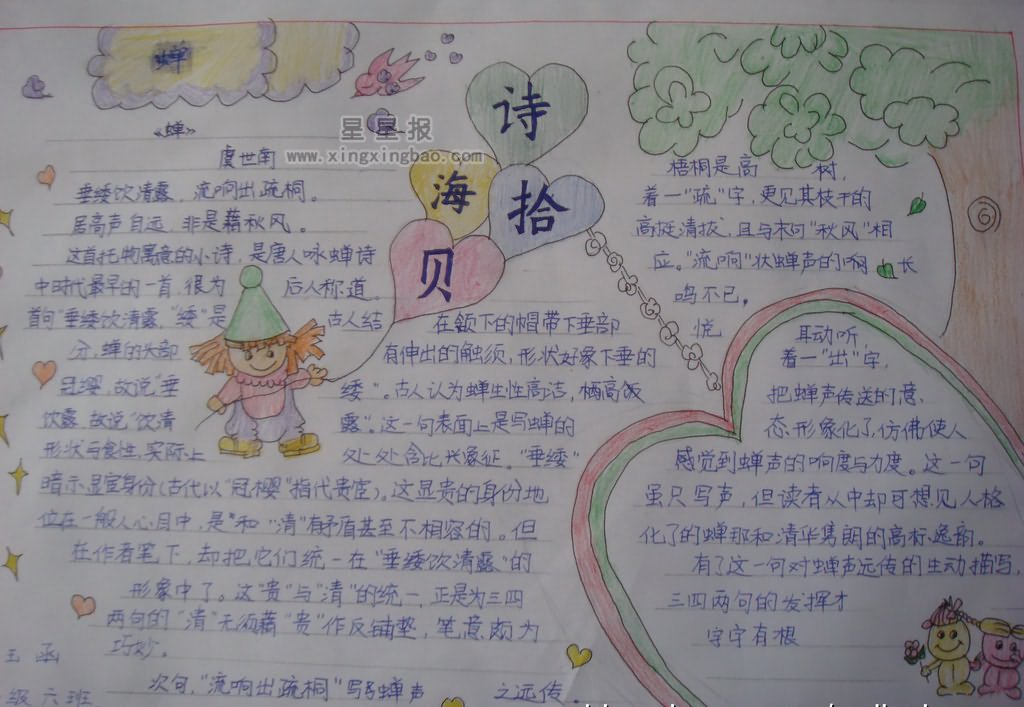 蝉
诗
海
拾
贝
星星报
www.xingxingbao.com
«蝉»
虞世南
垂緌饮清露,流响出疏桐。
居高声自远,非是藉秋风。
这首托物寓意的小诗,是唐人咏蝉诗
中时代最早的一首,很为 后人称道。
首句"垂緌饮清露,"緌"是 古人结 在领下的帽带下垂部
分,蝉的头部 有伸出的触须,形状好象下垂的
冠缨,故说"垂 緌"。古人认为蝉生性高洁,栖高饭
饮露,故说"饮清 露"。这一句表面上是写蝉的
形状与食性,实际上 处处含比兴象征。"垂緌"
暗示显宦身份(古代以"冠樱"指代贵宦)。这显贵的身份地
位在一般人心目中,是"和"清"有矛盾甚至不相容的。但
在作者笔下,却把它们统一在"垂緌饮清露"的
形象中了。这"贵"与"清"的统一,正是为三四
两句的"清"无须藉"贵"作反铺垫,笔意颇为
巧妙。
次句,"流响出疏桐"写蝉声 之远传。
梧桐是高 树,
着一"疏"字,更见其枝干的
高挺清拔,且与末句"秋风"相
应。"流响"状蝉声的响 长
鸣不已,
悦 耳动听,
着一"出"字,
把蝉声传送的意
态形象化了,仿佛使人
感觉到蝉声的响度与力度。这一句
虽只写声,但读者从中却可想见人格
化了的蝉那和清华隽朗的高标逸韵。
有了这一句对蝉声远传的生动描写,
三四两句的发挥才
字字有根
玉函
级六班